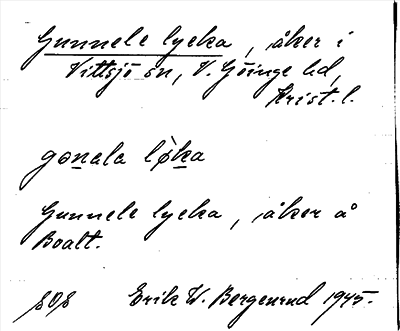 Gunnele lycka, åker i
Vittsjö sn, V. Göinge hd,
Krist. l.
gonala løka
Gunnele lycka, åker å
Boalt.
Erik W. Bergenrud 1945.